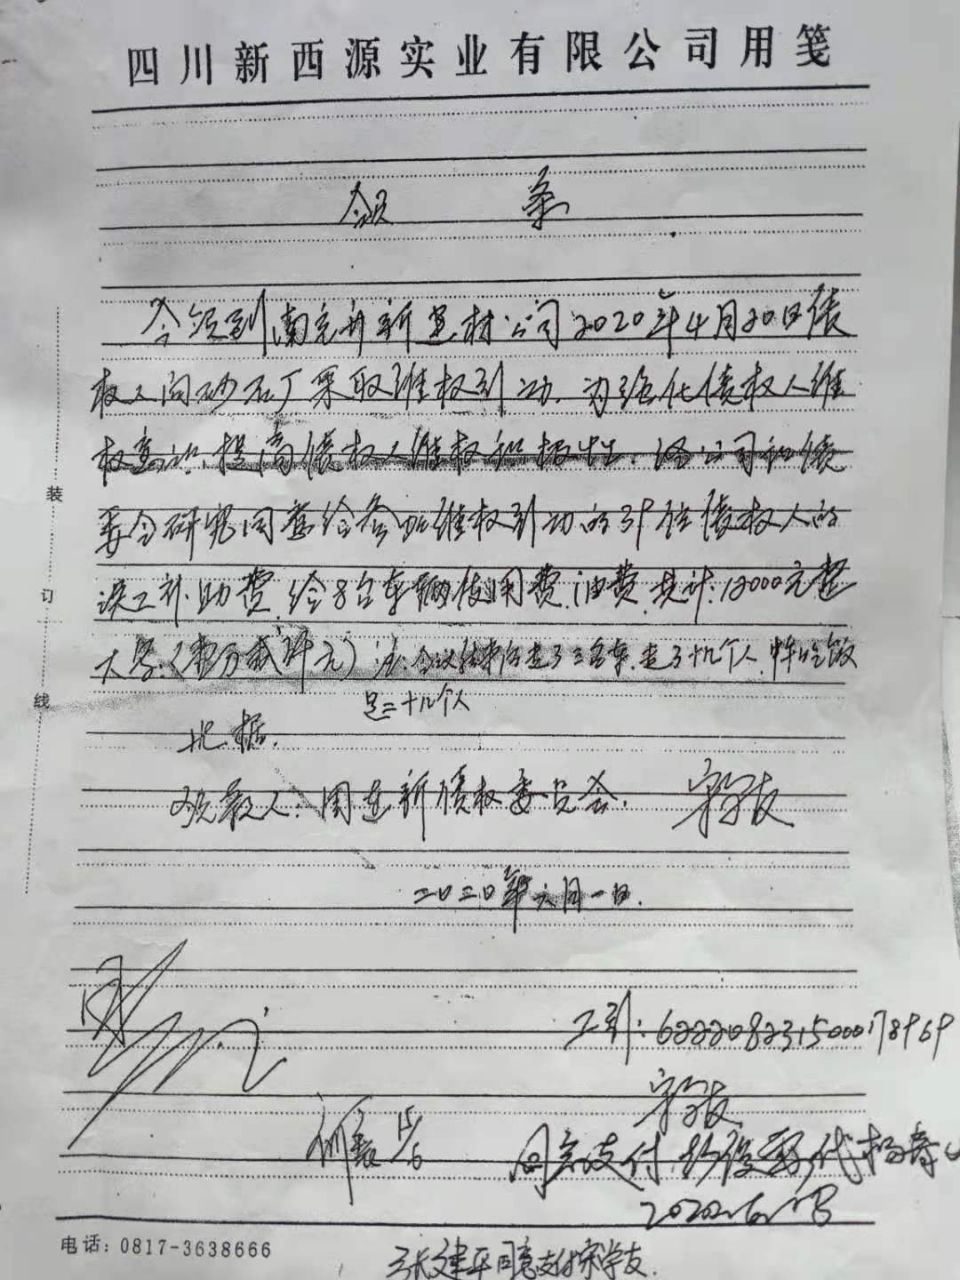 四川新西源实业有限公司用笺
领 条
今领到南充市新建材公司2020年4月20日债
权人向砂石厂采取维权行动,为强化债权人维
权意识,提高债权人维权积极性,经公司和债
委会研究同意给参加维权行动的39位债权人的
误工补助费,给8台车辆使用费,油费,共计:12000元整
大写:(壹万贰仟元)注:会议结束后走了三台车,走了十几个人,中午吃饭
是二十几个人
此据.
领款人: 新债权委员会. 宋学友
二〇二〇年六月一日.
装
订
线
工行:6222082315000178969
宋学友
同意支付
电话:0817-3638666
张建平同意支付宋学友.